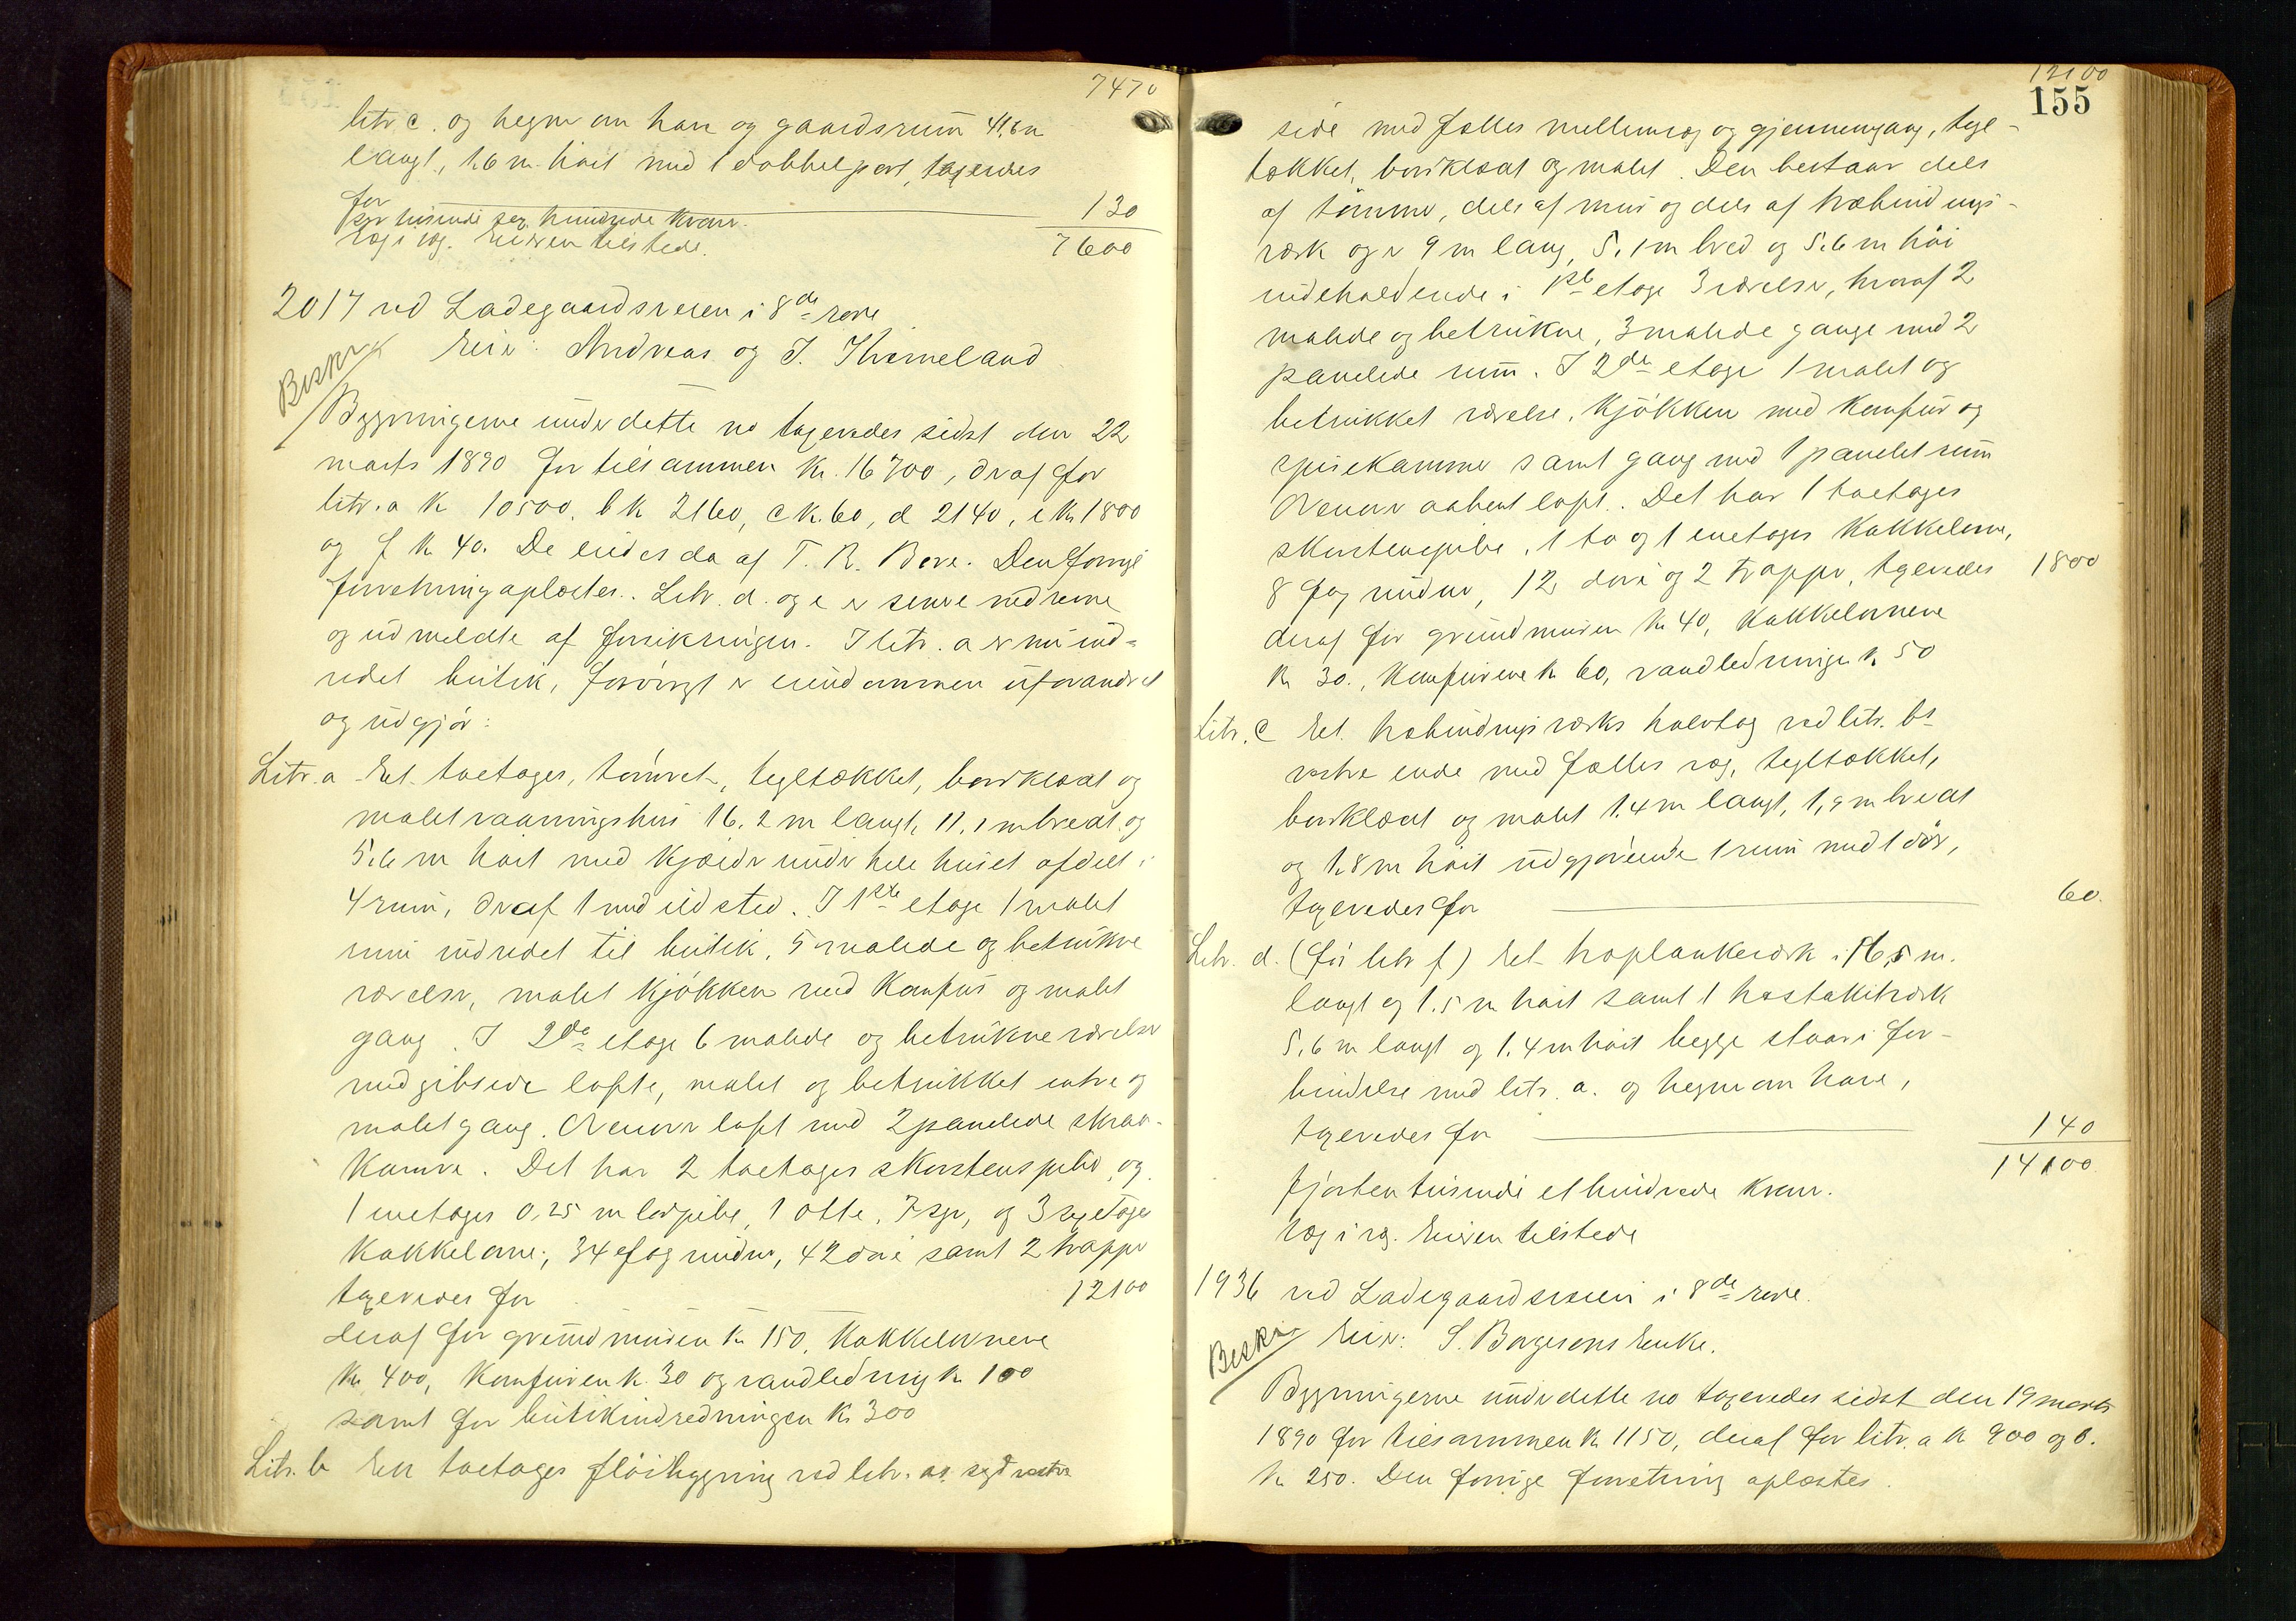 7470
litr c. og hegne om have og gaardsrum 41,6 m
langt, 1.6 m høit med 1 dobbelport, taxeredes
for 130
syv tusinde sex hundrede kroner. 7600
Væg i væg. Eieren tilstede.
2017 ved Ladegaardsveien i 8de rode
Beskr
Eier: Andreas og T. Thimeland
Bygningerne under dette no taxeredes sidst den 22
marts 1890 for tilsammen Kr. 16700, deraf for
litr. a K 10500, b K 2160, c K. 60, d 2140, e Kr 1800
og f Kr 40. De eiedes da af T. R. Bore. Den forrige
forretning oplæstes. Litr. d. og e er senere nedrevne
og udmeldte af forsikringen. I litr. a er nu ind-
redet butik, forøvrigt er eiendommen uforandret
og udgjør:
Litr. a Et toetages, tømret, tegltækket, bordklædt og
malet vaaningshus 16,2 m langt, 11,1 m bredt og
5,6 m høit med kjælder under hele huset afdelt i
4 rum, deraf 1 med ildsted. I 1ste etage 1 malet
rum indredet til butik, 5 malede og betrukne
værelser, malet kjøkken med komfur og malet
gang. I 2den etage 6 malede og betrukne værelser
med gibsede lofte, malet og betrukket entre og
malet gang. Ovenover loft med 2 panelede skraa-
kamre. Det har 2 toetages skorstenspiber og
1 enetages 0,25 m lerpibe, 1 otte, 7 syv, og 3 sexetages
kakkelovne, 34 fag vinduer, 42 døre samt 2 trapper
taxeredes for 12100
deraf for grundmuren Kr 150, Kakkelovnene
Kr 400, Komfuren K. 30 og vandledning Kr 100
samt for butikindredningen Kr 300
Litr. b En toetages fløibygning ved litr. as sydvestre
12100
155
side med fælles mellemvæg og gjennemgang, tegl-
tækket, bordklædt og malet. Den bestaar dels
af tømmer, dels af mur og dels af træbindings-
værk og er 9 m lang, 5,1 m bred og 5,6 m høi
indeholdende i 1ste etage 3 værelser, hvoraf 2
malede og betrukne, 3 malede gange med 2
panelede rum. I 2den etage 1 malet og
betrukket værelse, kjøkken med komfur og
spisekammer samt gang med 1 panelet rum
Ovenover aabent loft. Det har 1 toetages
skorstenspibe, 1 to og 1 enetages kakkelovne,
8 fag vinduer, 12 døre og 2 trapper, taxeredes 1800
deraf for grundmuren Kr 40, Kakkelovnene
Kr 30., Komfurene Kr 60, vandledningen Kr 50
Litr. c Et træbindingsværks halvtag ved litr. bs
vestre ende med fælles væg, tegltækket,
bordklædt og malet 1.4 m langt, 1,9 m bredt
og 1.8 m høit udgjørende 1 rum med 1 dør,
taxeredes for 60.
Litr. d. (før litr f) Et træplankeværk 16,5 m.
langt og 1.5 m høit samt 1 træstakitværk
5,6 m langt og 1.4 m høit begge staar i for-
bindelse med litr. a. og hegne om have,
taxeredes for 140
14100
fjorten tusinde et hundrede kroner.
Væg i væg. Eieren tilstede
1936 ved Ladegaardsveien i 8de rode.
Beskr
Eier: S. Børgesens Enke.
Bygningerne under dette no taxeredes sidst den 19 marts
1890 for tilsammen Kr 1150, deraf for litr. a Kr 900 og b.
Kr 250. Den forrige forretning oplæstes.